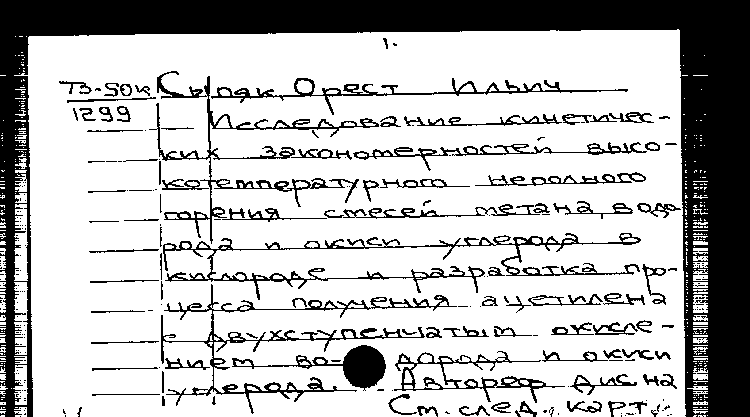 1.
73-50к Сыпяк, Орест Ильич
1299
Исследование кинетичес-
ких закономерностей высо-
котемпературного неполного
горения смесей метана, водо-
рода и окиси углерода в
кислороде и разработка про-
цесса получения ацетилена
с двухступенчатым окисле-
нием во- дорода и окиси
углерода. Автореф дис на
См. след. карт.